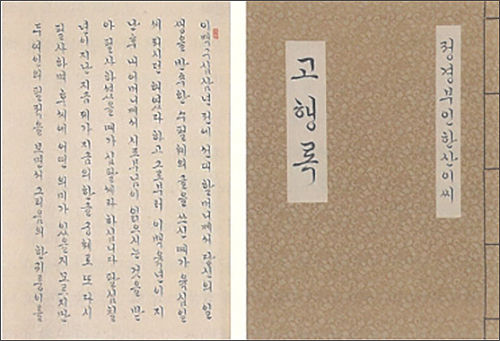 고행록
정경부인한산이씨
이백구십삼년 전의 선대 할머니께서 당신의 일
생을 반추한 수필체의 글을 쓰신 때가 육십일
세 되시던 해였다 하고 그로부터 이백육십년이 지
난 후 내 어머니께서 시조부님이 읽으시는 것을 받
아 필사하셨을 때가 삼십세라 하십니다
년이 지난 지금 제가 한글 궁체로 또 다시
필사하며 후세에 어떤 의미가 있을지 모르지만
두 여인의 보면서 그리움의